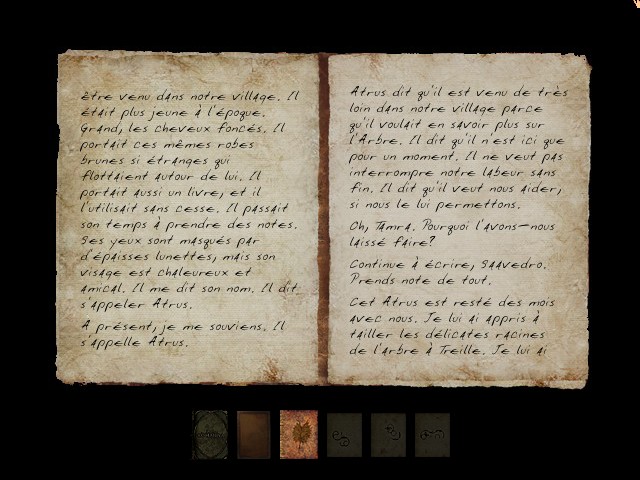 être venu dans notre village. Il
était plus jeune à l'époque.
Grand, les cheveux foncés. Il
portait ces mêmes robes
brunes si étranges qui
flottaient autour de lui. Il
portait aussi un livre, et il
l'utilisait sans cesse. Il passait
son temps à prendre des notes.
Ses yeux sont masqués par
d'épaisses lunettes, mais son
visage est chaleureux et
amical. Il me dit son nom. Il dit
s'appeler Atrus.
A présent, je me souviens. Il
s'appelle Atrus.
Atrus dit qu'il est venu de très
loin dans notre village parce
qu'il voulait en savoir plus sur
l'Arbre. Il dit qu'il n'est ici que
pour un moment. Il ne veut pas
interrompre notre labeur sans
fin. Il dit qu'il veut nous aider,
si nous le lui permettons.
Oh, Tamra. Pourquoi l'avons-nous
laissé faire?
Continue à écrire, Saavedro.
Prends note de tout.
Cet Atrus est resté des mois
avec nous. Je lui ai appris à
tailler les délicates racines
de l'Arbre à Treille. Je lui ai